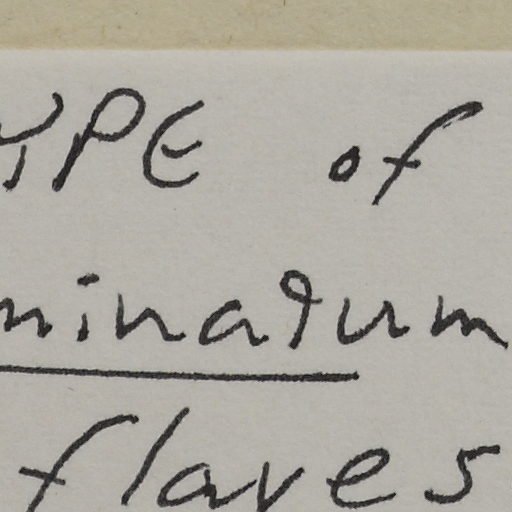 TYPE of
minatum
flaves